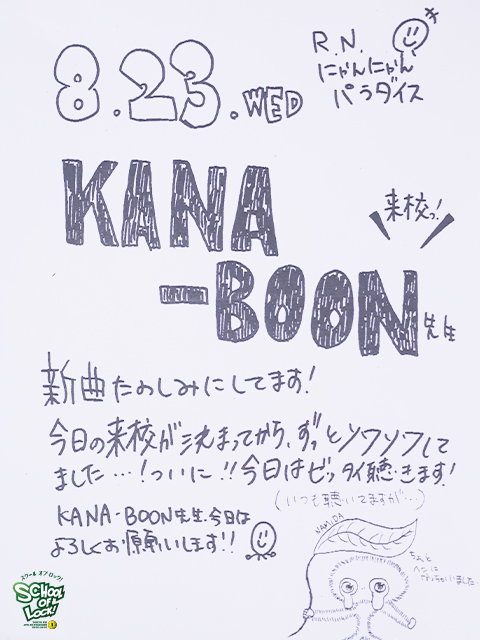 8.23.WED
R.N.
にゃんにゃん
パラダイス
KANA
来校っ!
-BOON先生
新曲たのしみにしてます!
今日の来校が決まってから、ずっとソワソワして
ました…!ついに!!今日はゼッタイ聴きます!
(いつも聴いてますが…)
KANA-BOON先生、今日は
よろしくお願いします!!
NAMIDA
ちょっと
ヘンに
なっちゃいました
スクール オブ ロック!
SCHOOL
OF
LOCK!